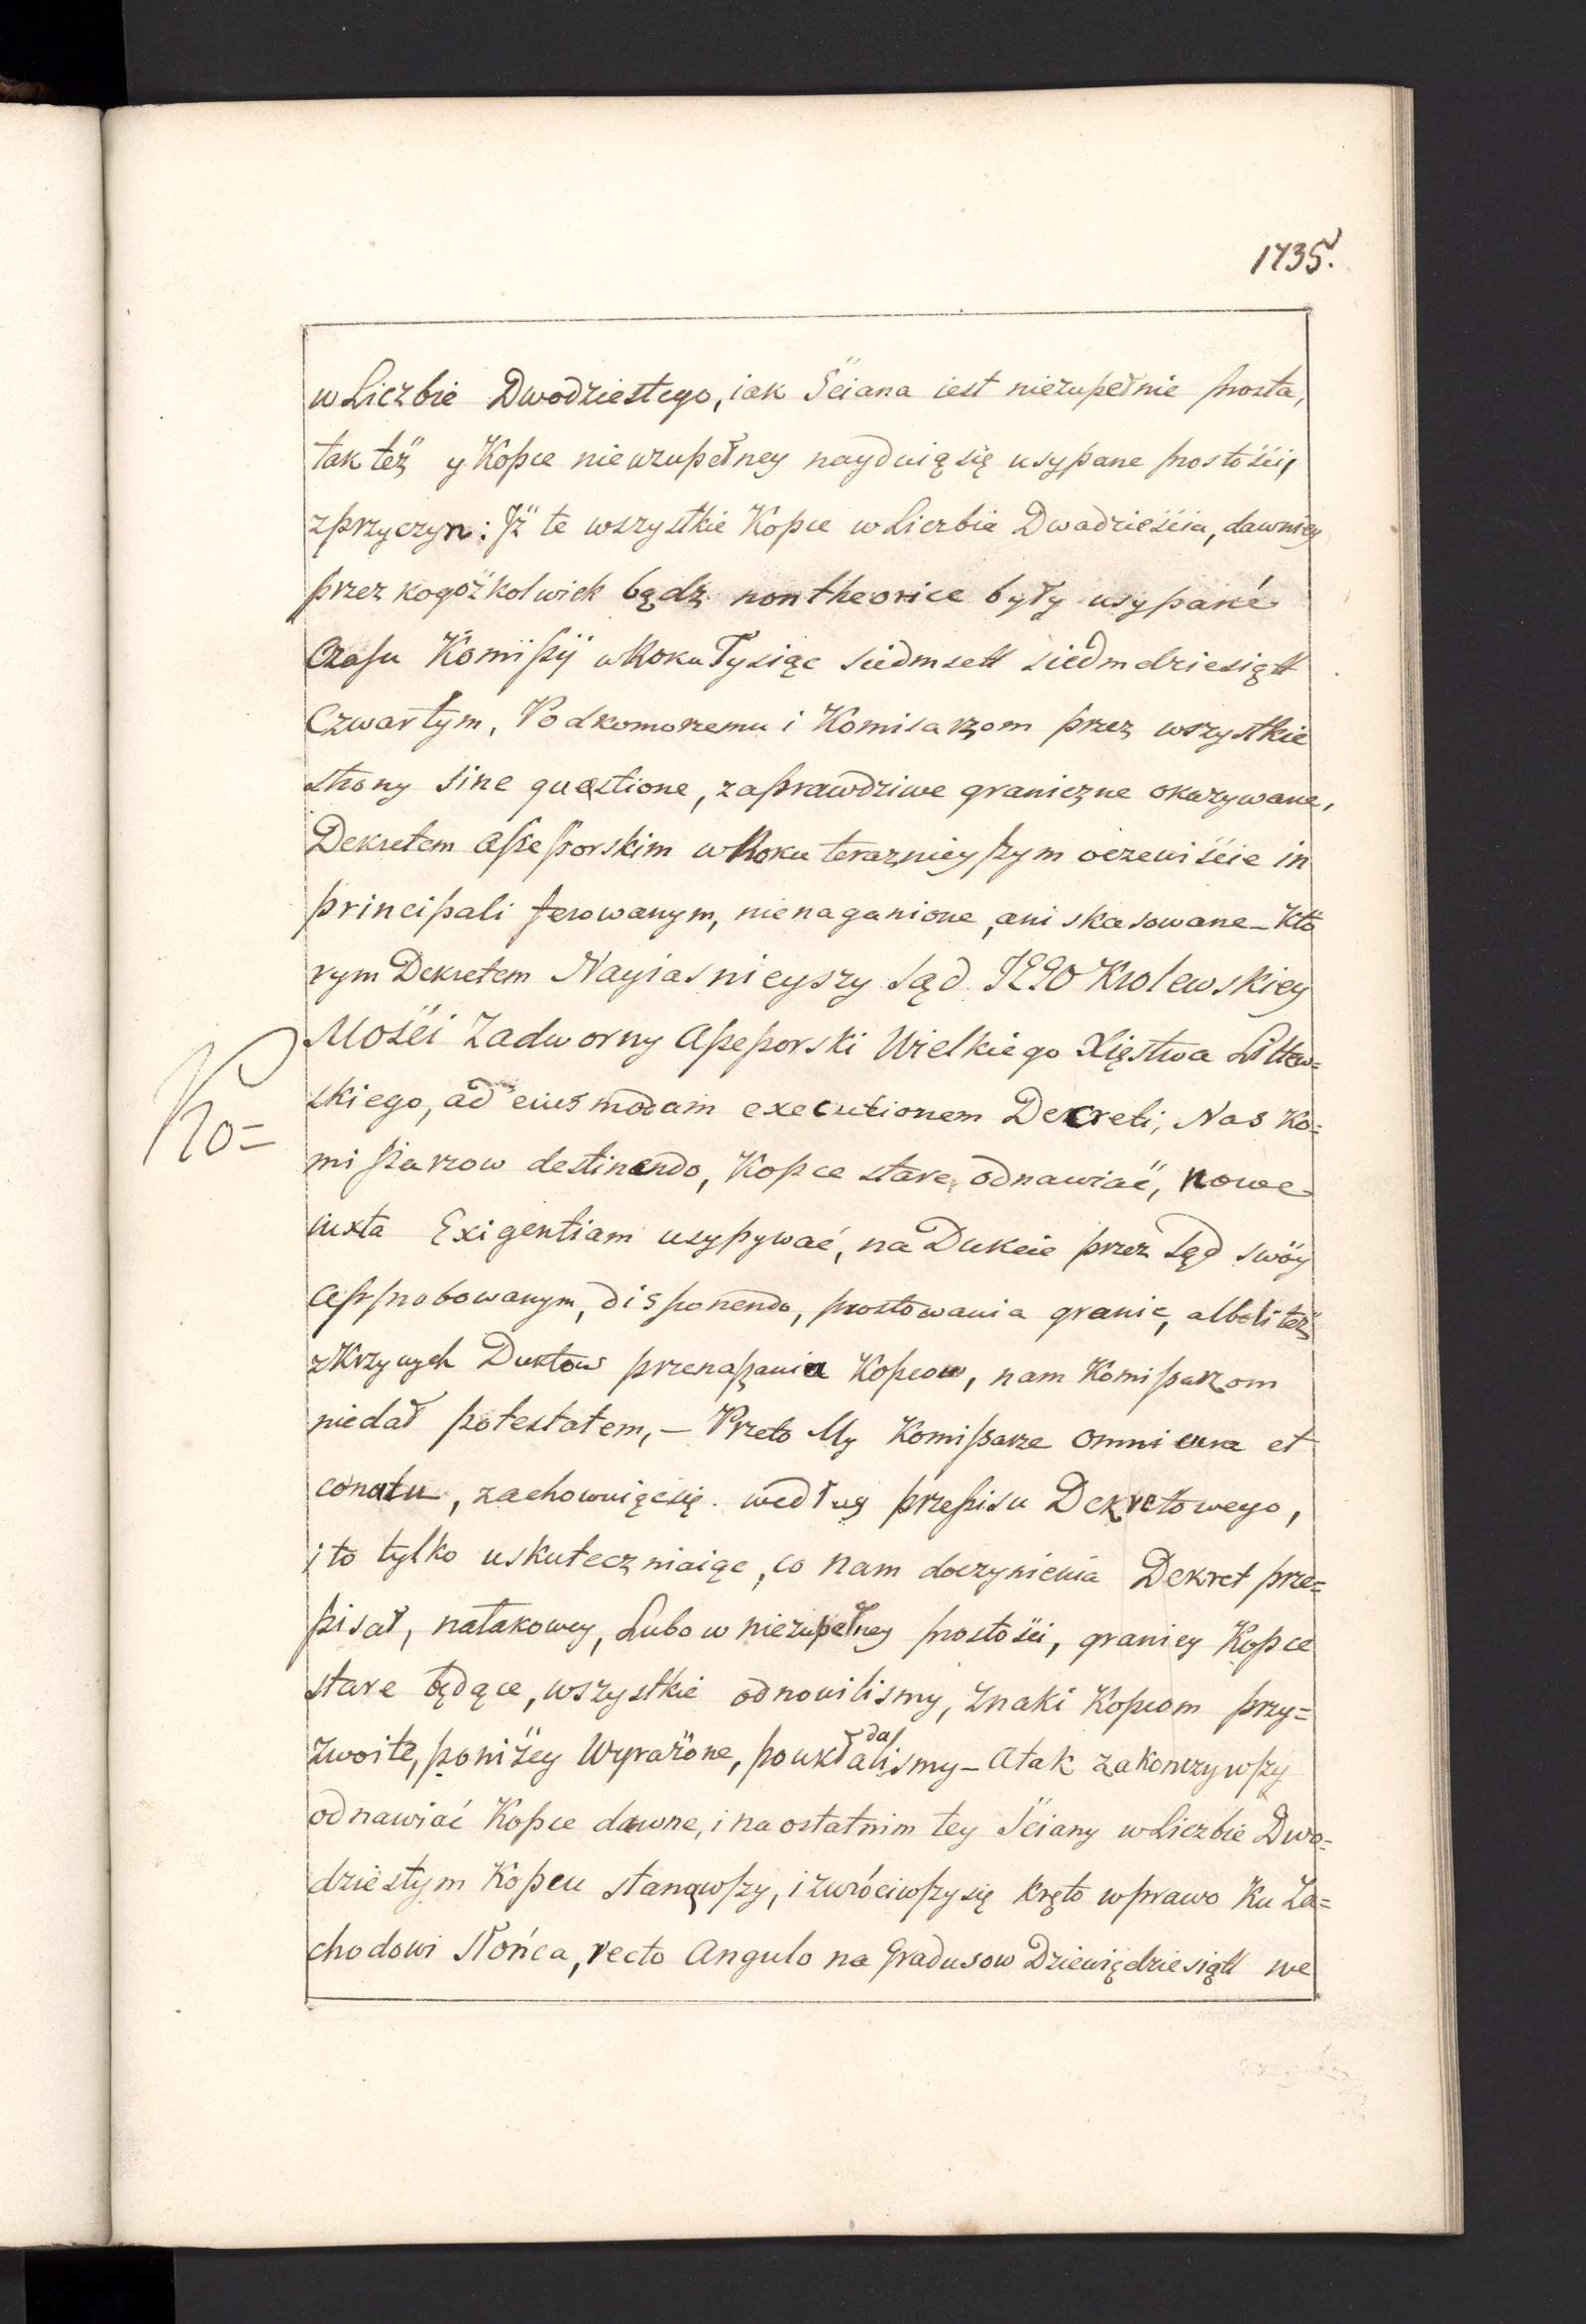 1735.
w Liczbie Dwodziestego, iak Ściana iest niezupełnie prosta,
tak też y Kopce nie wzupełney nayduią się usypane prostości,
z przyczyn: Iż te wszystkie Kopce w Liczbie Dwadzieścia, dawniey
przez kogożkolwiek bądz non theorice były usypané
Czasu Komißÿ w Roku Tysiąc siedmsett siedmdziesiątt
Czwartym, Podkomorzemu i Komisarzom przez wszystkie
strony sine questione, za prawdziwe graniczne okazywane,
Dekretem Aßeßorskim w Roku teraznieyszym oczewiście in
principali ferowanym, nienaganione, ani skasowane – Któ
rym Dekretem Nayiasnieyszy Sąd JEGO Krolewskiey
Mości Zadworny Aßeßorski Wielkiego Xięstwa Littew=
skiego, ad eius modam executionem Decreti, Nas Ko=
Ko=
mißarzow destinendo, Kopce stare odnawiać, nowe
iuxta Exigentiam usypywać, na Dukcie przez Sąd swóy
approbowanym, disponendo, prostowania granic, alboli też
z Krzywych Duktow przenaszania Kopcow, nam Komißarzom
niedał potestatem, – Przeto My Komißarze omni cura et
conatu, zachowuiąc się według przepisu Dekretowego,
i to tylko uskuteczniaiąc, co nam doczynienia Dekret prze=
pisał, natakowey, Lubo w niezupełney prostości, graniey Kopce
stare będące, wszystkie odnowilismy, znaki Kopcom przy=
zwoite, poniżey Wyrażone, poukładalismy – A tak zakonczywszy
odnawiać Kopce dawne, i na ostatnim tey Ściany w Liczbie Dwo=
dziestym Kopcu stanąwszy, i zwróciwszy się kręto wprawo Ku Za=
chodowi Słońca, recto Angulo na Gradusow Dziewiędziesiątt we